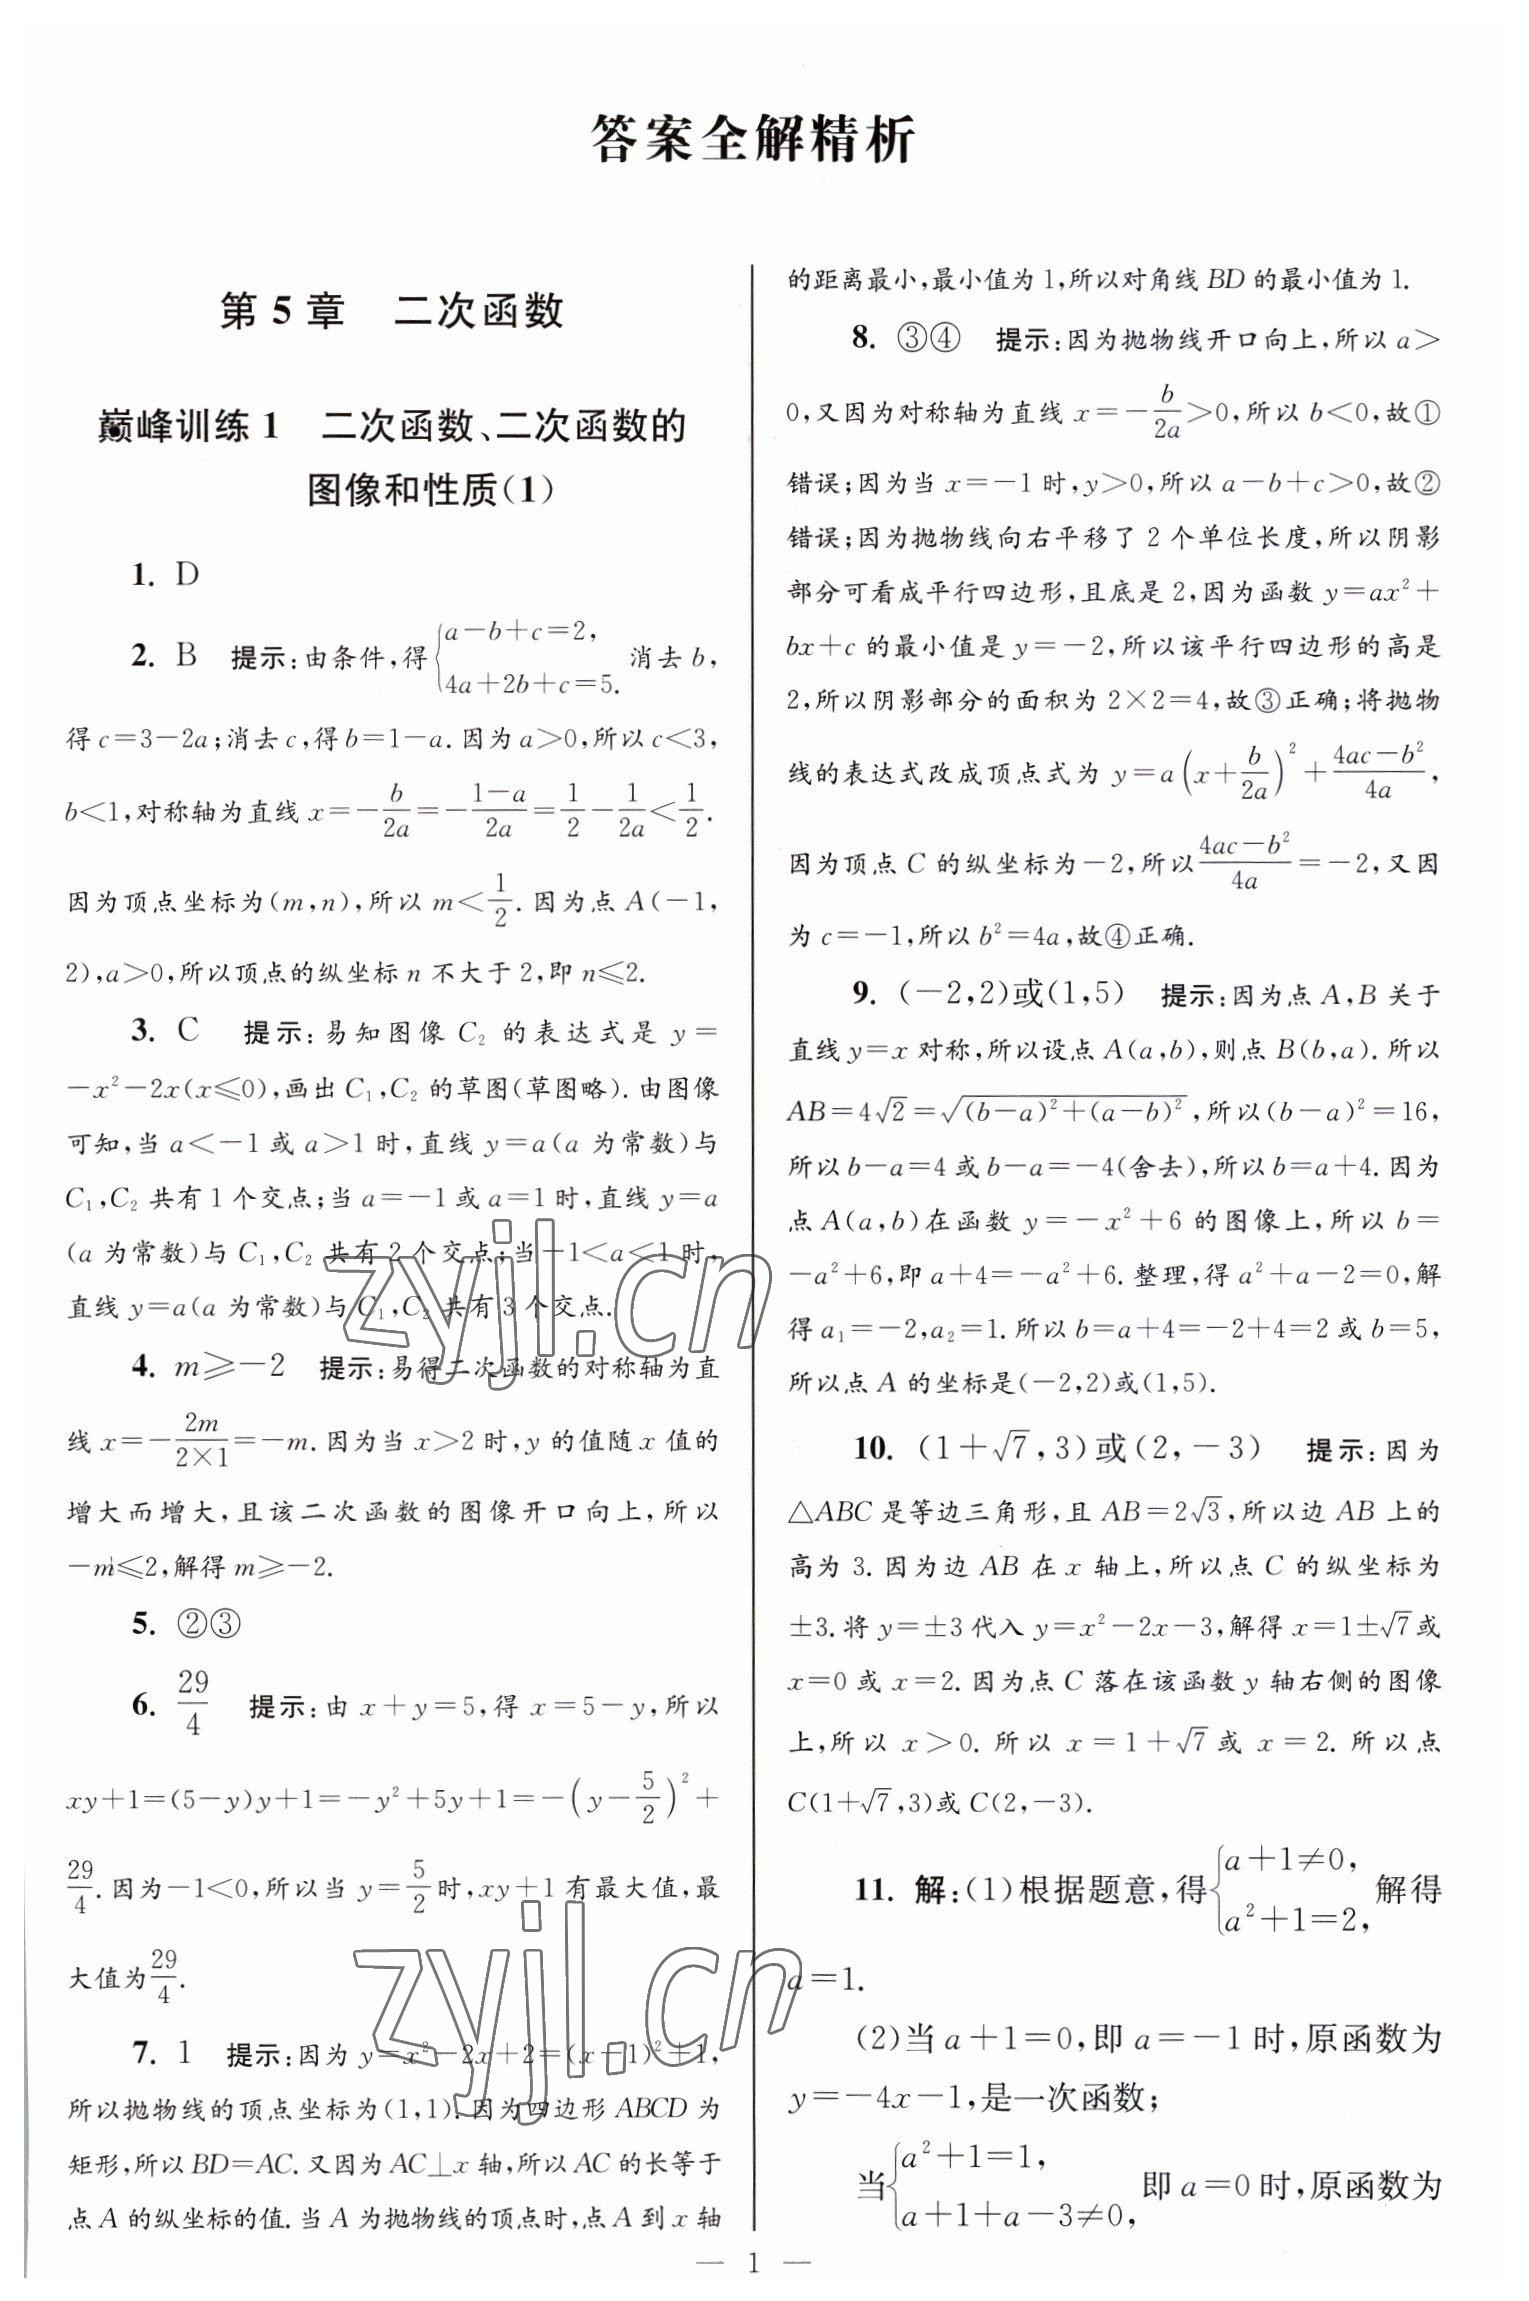 答案全解精析
第 5 章　二次函数
巅峰训练 1　二次函数、二次函数的
图像和性质(1)
1. D
2. B　提示:由条件,得{a－b＋c＝2, 4a＋2b＋c＝5. 消去 b,
得 c＝3－2a;消去 c,得 b＝1－a. 因为 a＞0,所以 c＜3,
b＜1,对称轴为直线 x＝－b/2a＝－(1－a)/2a＝1/2－1/2a＜1/2.
因为顶点坐标为(m,n),所以 m＜1/2. 因为点 A(－1,
2),a＞0,所以顶点的纵坐标 n 不大于 2,即 n≤2.
3. C　提示:易知图像 C₂ 的表达式是 y＝
－x²－2x(x≤0),画出 C₁,C₂ 的草图(草图略). 由图像
可知,当 a＜－1 或 a＞1 时,直线 y＝a(a 为常数)与
C₁,C₂ 共有 1 个交点;当 a＝－1 或 a＝1 时,直线 y＝a
(a 为常数)与 C₁,C₂ 共有 2 个交点;当－1＜a＜1 时,
直线 y＝a(a 为常数)与 C₁,C₂ 共有 3 个交点.
4. m≥－2　提示:易得二次函数的对称轴为直
线 x＝－2m/(2×1)＝－m. 因为当 x＞2 时,y 的值随 x 值的
增大而增大,且该二次函数的图像开口向上,所以
－m≤2,解得 m≥－2.
5. ②③
6. 29/4　提示:由 x＋y＝5,得 x＝5－y,所以
xy＋1＝(5－y)y＋1＝－y²＋5y＋1＝－(y－5/2)²＋
29/4. 因为－1＜0,所以当 y＝5/2时,xy＋1 有最大值,最
大值为29/4.
7. 1　提示:因为 y＝x²－2x＋2＝(x－1)²＋1,
所以抛物线的顶点坐标为(1,1). 因为四边形 ABCD 为
矩形,所以 BD＝AC. 又因为 AC⊥x 轴,所以 AC 的长等于
点 A 的纵坐标的值. 当 A 为抛物线的顶点时,点 A 到 x 轴
的距离最小,最小值为 1,所以对角线 BD 的最小值为 1.
8. ③④　提示:因为抛物线开口向上,所以 a＞
0,又因为对称轴为直线 x＝－b/2a＞0,所以 b＜0,故①
错误;因为当 x＝－1 时,y＞0,所以 a－b＋c＞0,故②
错误;因为抛物线向右平移了 2 个单位长度,所以阴影
部分可看成平行四边形,且底是 2,因为函数 y＝ax²＋
bx＋c 的最小值是 y＝－2,所以该平行四边形的高是
2,所以阴影部分的面积为 2×2＝4,故③正确;将抛物
线的表达式改成顶点式为 y＝a(x＋b/2a)²＋(4ac－b²)/4a,
因为顶点 C 的纵坐标为－2,所以(4ac－b²)/4a＝－2,又因
为 c＝－1,所以 b²＝4a,故④正确.
9. (－2,2)或(1,5)　提示:因为点 A,B 关于
直线 y＝x 对称,所以设点 A(a,b),则点 B(b,a). 所以
AB＝4√2＝√((b－a)²＋(a－b)²),所以(b－a)²＝16,
所以 b－a＝4 或 b－a＝－4(舍去),所以 b＝a＋4. 因为
点 A(a,b)在函数 y＝－x²＋6 的图像上,所以 b＝
－a²＋6,即 a＋4＝－a²＋6. 整理,得 a²＋a－2＝0,解
得 a₁＝－2,a₂＝1. 所以 b＝a＋4＝－2＋4＝2 或 b＝5,
所以点 A 的坐标是(－2,2)或(1,5).
10. (1＋√7,3)或(2,－3)　提示:因为
△ABC 是等边三角形,且 AB＝2√3,所以边 AB 上的
高为 3. 因为边 AB 在 x 轴上,所以点 C 的纵坐标为
±3. 将 y＝±3 代入 y＝x²－2x－3,解得 x＝1±√7或
x＝0 或 x＝2. 因为点 C 落在该函数 y 轴右侧的图像
上,所以 x＞0. 所以 x＝1＋√7 或 x＝2. 所以点
C(1＋√7,3)或 C(2,－3).
11. 解:(1)根据题意,得{a＋1≠0, a²＋1＝2, 解得
a＝1.
(2)当 a＋1＝0,即 a＝－1 时,原函数为
y＝－4x－1,是一次函数;
当{a²＋1＝1, a＋1＋a－3≠0, 即 a＝0 时,原函数为
— 1 —
zyjl.cn
zyjl.cn